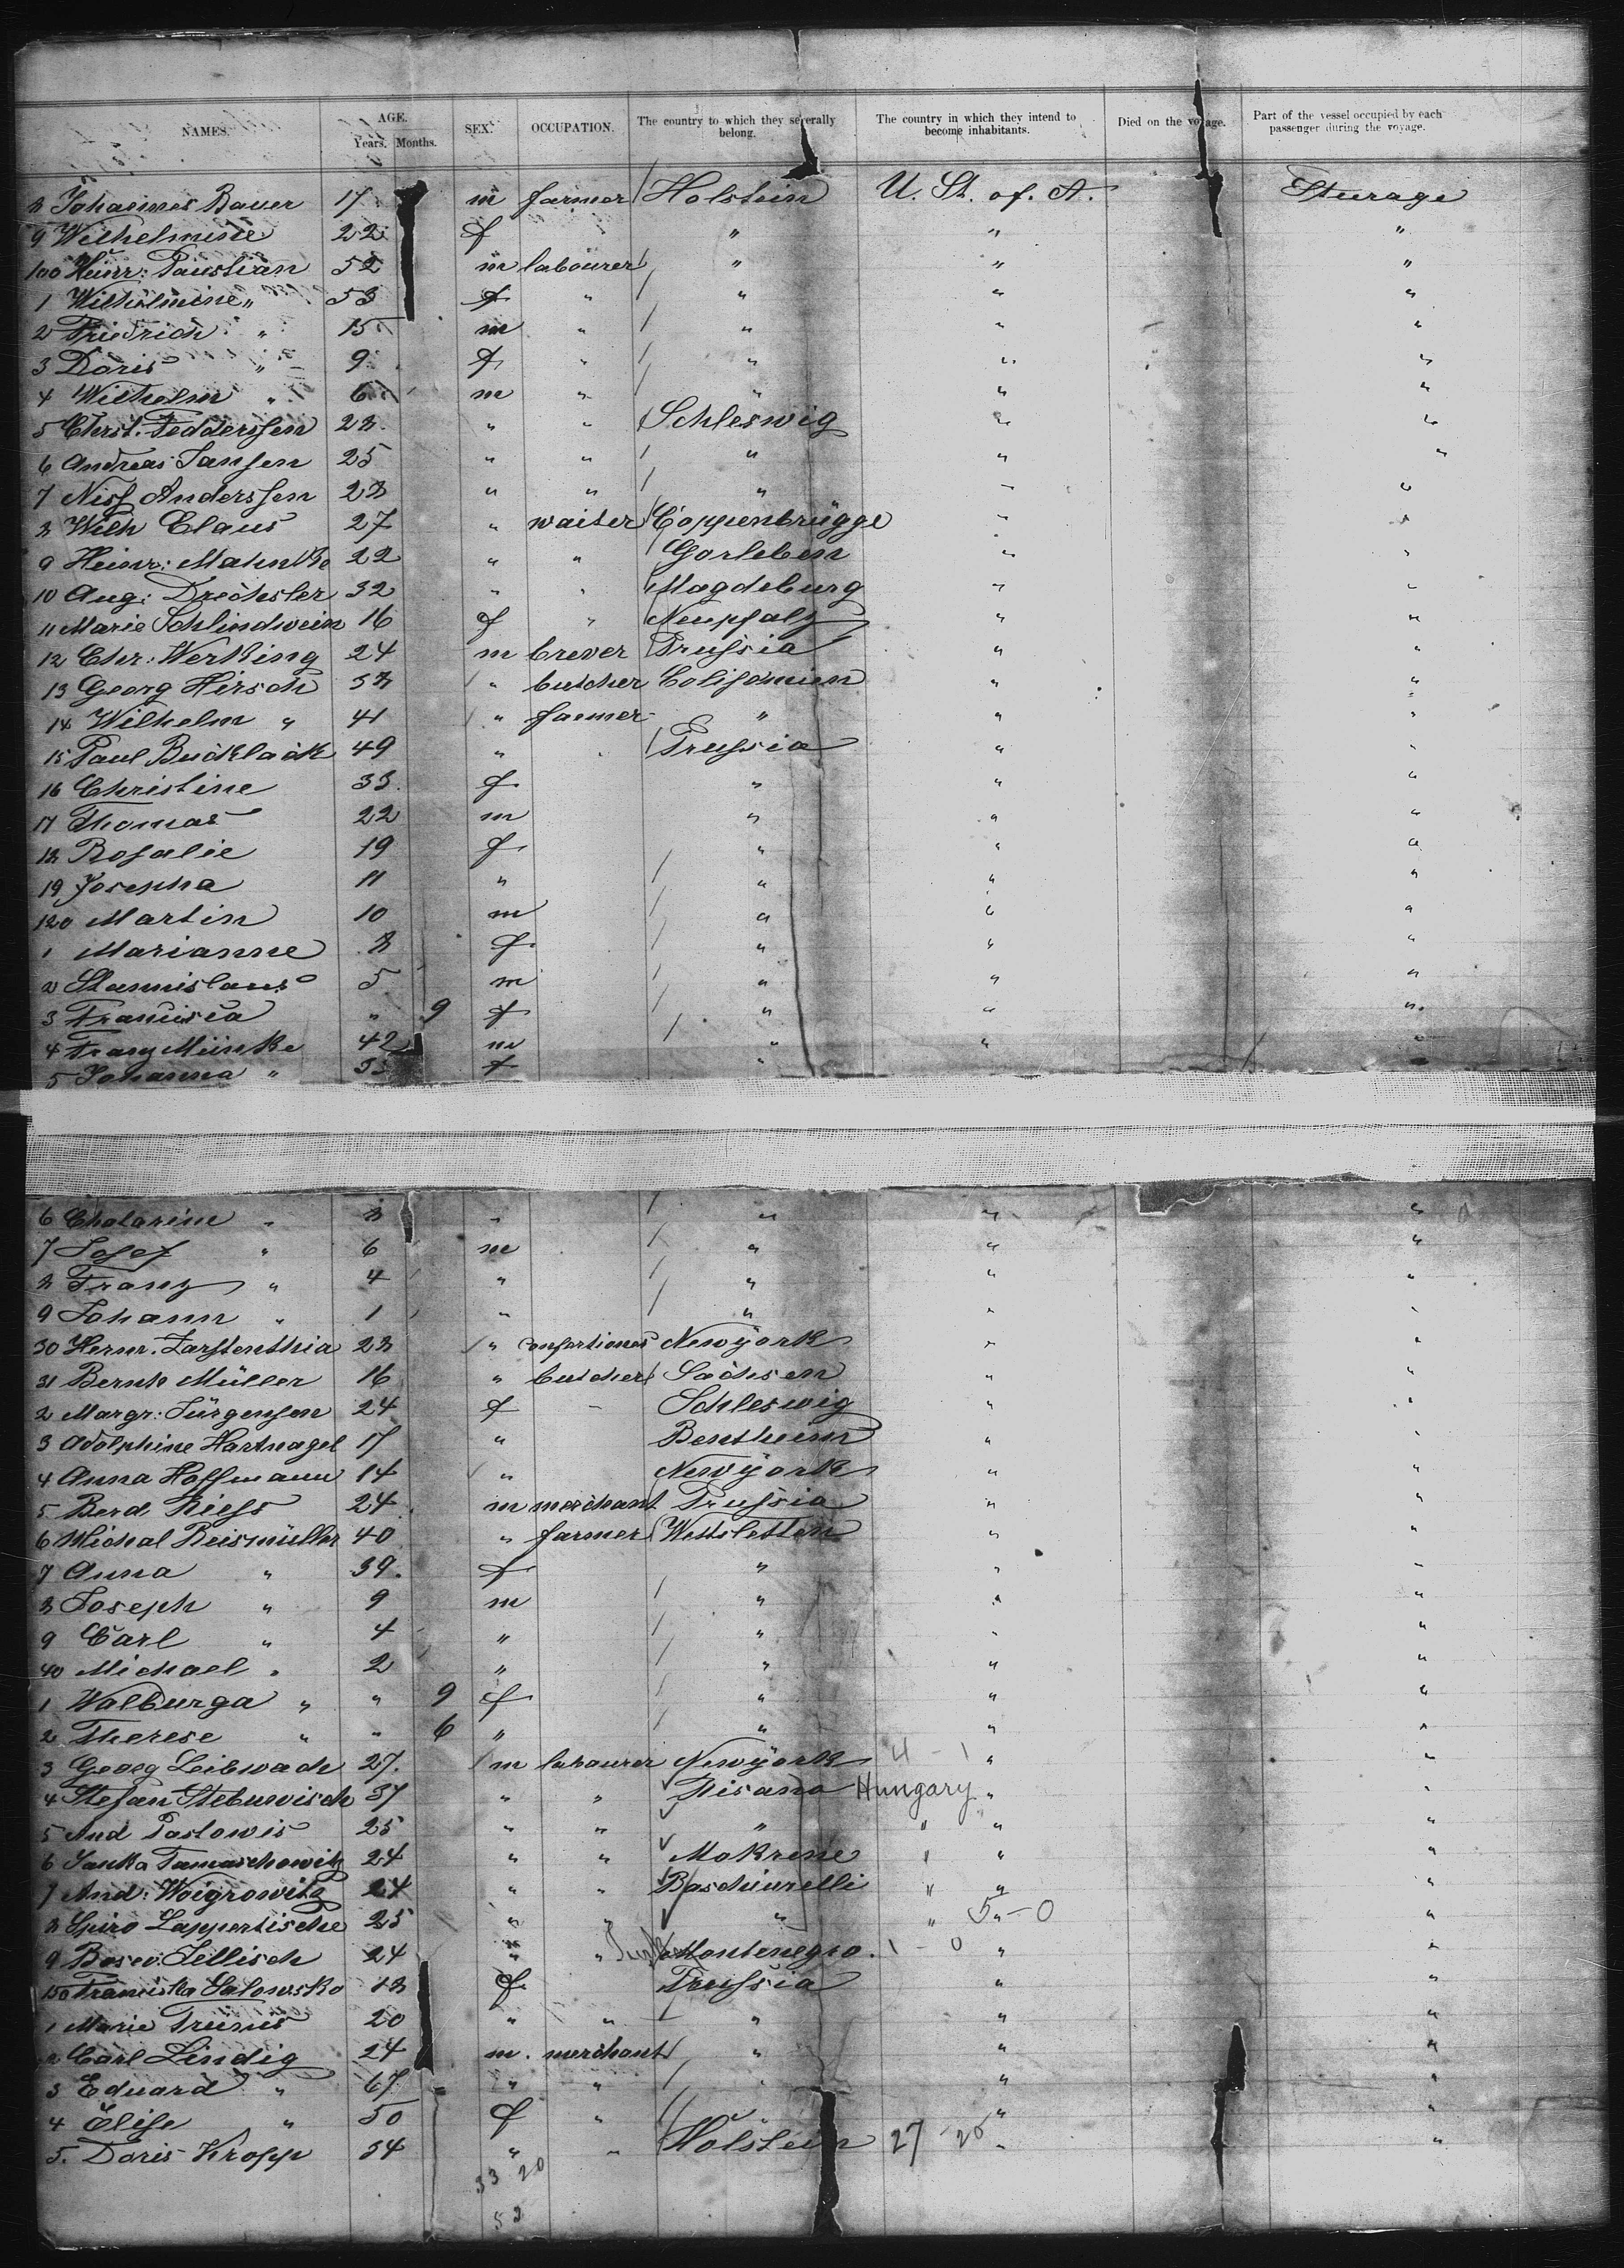 NAMES. AGE. Years. Months. SEX. OCCUPATION. The country to which they severally belong. The country in which they intend to become inhabitants. Died on the voyage. Part of the vessel occupied by each passenger during the voyage.
8 Johannes Bauer 17 m farmer Holstein U. St. of. A. Steurage
9 Wilhelmine 22 f " " "
100 Heinr: Paustian 52 m labourer " " "
1 Wilhelmine " 53 f " " " "
2 Friedrich " 15 m " " " "
3 Doris " 9 f " " " "
4 Wilhelm " 6 m " " " "
5 Christ. Fedderssen 28 " " Schleswig " "
6 Andreas Jansen 25 " " " " "
7 Niss Anderssen 28 " " " " "
8 Wilh Claus 27 " waiter Coppenbrügge " "
9 Heinr: Mahnke 22 " " Gorleben " "
10 Aug: Drechsler 32 " " Magdeburg " "
11 Marie Schlindwein 16 f " Neupfalz " "
12 Chr: Werking 24 m brever Prussia " "
13 Georg Hirsch 38 " butcher " "
14 Wilhelm " 41 " farmer " " "
15 Paul 49 " " Prussia " "
16 Christine 33 f " " "
17 Thomas 22 m " " "
18 Rosalie 19 f " " "
19 Josepha 11 " " " "
120 Martin 10 m " " "
1 Marianne 8 f " " "
2 Stannislaus 5 m " " "
3 Francisca " 9 f " " "
4 Franz Münke 42 m " " "
5 Johanna " f "
6 Chatarine " 8 " " " "
7 Josef " 6 m " " "
8 Franz " 4 " " " "
9 Johann " 1 " " " "
30 Herm. 28 " Newyork " "
31 Bernh Müller 16 " butcher Sachsen " "
2 Margr: Jürgensen 24 f - Schleswig " "
3 Adolphine Hartnagel 17 " Bentheim " "
4 Anna Hoffmann 14 " Newyork " "
5 Berd Riess 24 m merchant Prussia " "
6 Michal Reismüller 40 " farmer " "
7 Anna " 39. f " " "
8 Joseph " 9 m " " "
9 Carl " 4 " " " "
40 Michael " 2 " " " "
1 Walburga " " 9 f " " "
2 Therese " " 6 " " " "
3 Georg Leibwach 27. m labourer Newyork " "
4 Stefan Stebuwisch 37 " " Risano Hungary " "
5 And Paslowis 25 " " " " " "
6 Janka Tamaschowitz 24 " " Mokrene " " "
7 And: Woigrowitz 24 " " " " "
8 Spiro Lappertische 25 " " " " 5 - 0 "
9 Jellisch 24 " " Montenegro. 1 - 0 " "
150 Franciska 18 f Prussia " "
1 Marie 20 " " " " "
2 Carl Lindig 24 m. merchant " " "
3 Eduard " 67 " " " " "
4 Elise " 50 f " " " "
5. Doris Kropp 54 " " Holstein 27 20 " "
33 20